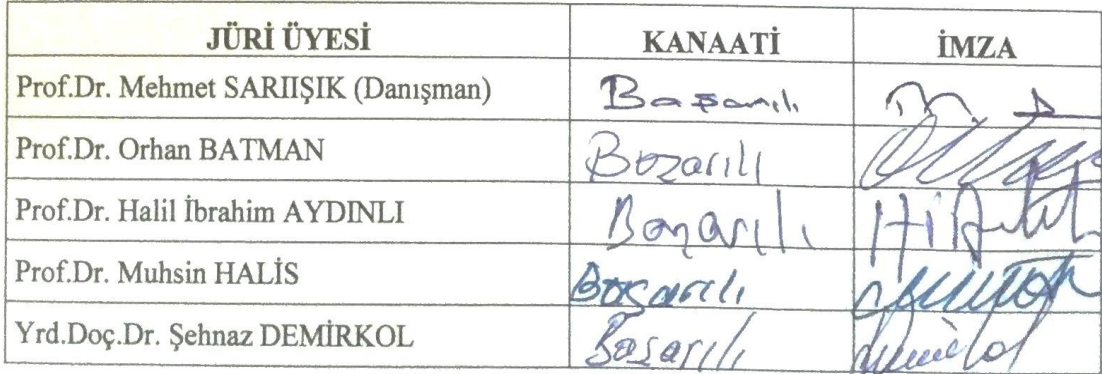 JÜRİ ÜYESİ KANAATİ İMZA
Prof.Dr. Mehmet SARIIŞIK (Danışman) Başarılı
Prof.Dr. Orhan BATMAN Başarılı
Prof.Dr. Halil İbrahim AYDINLI Başarılı
Prof.Dr. Muhsin HALİS Başarılı
Yrd.Doç.Dr. Şehnaz DEMİRKOL Başarılı